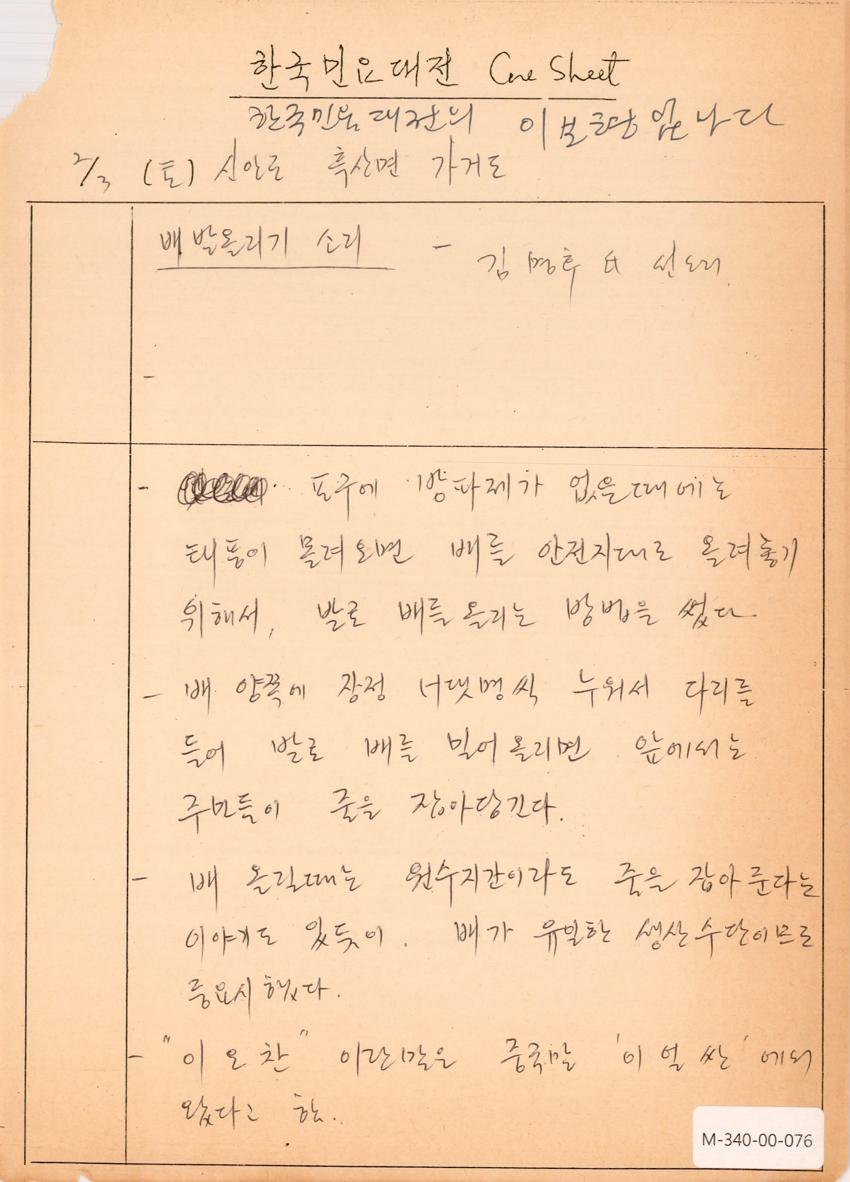 한국민요대전 Cue Sheet
한국민요대전의 이보형입니다
2/3 (토) 신안군 흑산면 가거도
배 발올리기 소리 - 김명후 氏 선소리
-
- 포구에 방파제가 없을때에는
태풍이 몰려오면 배를 안전지대로 올려놓기
위해서, 발로 배를 올리는 방법을 썼다.
- 배 양쪽에 장정 너댓명씩 누워서 다리를
들어 발로 배를 밀어올리면 앞에서는
주민들이 줄을 잡아당긴다.
- 배 올릴때는 원수지간이라도 줄을 잡아 준다는
이야기도 있듯이. 배가 유일한 생산수단이므로
중요시 했다.
- "이오찬" 이란말은 중국말 '이얼싼'에서
왔다고 함..
M-340-00-076